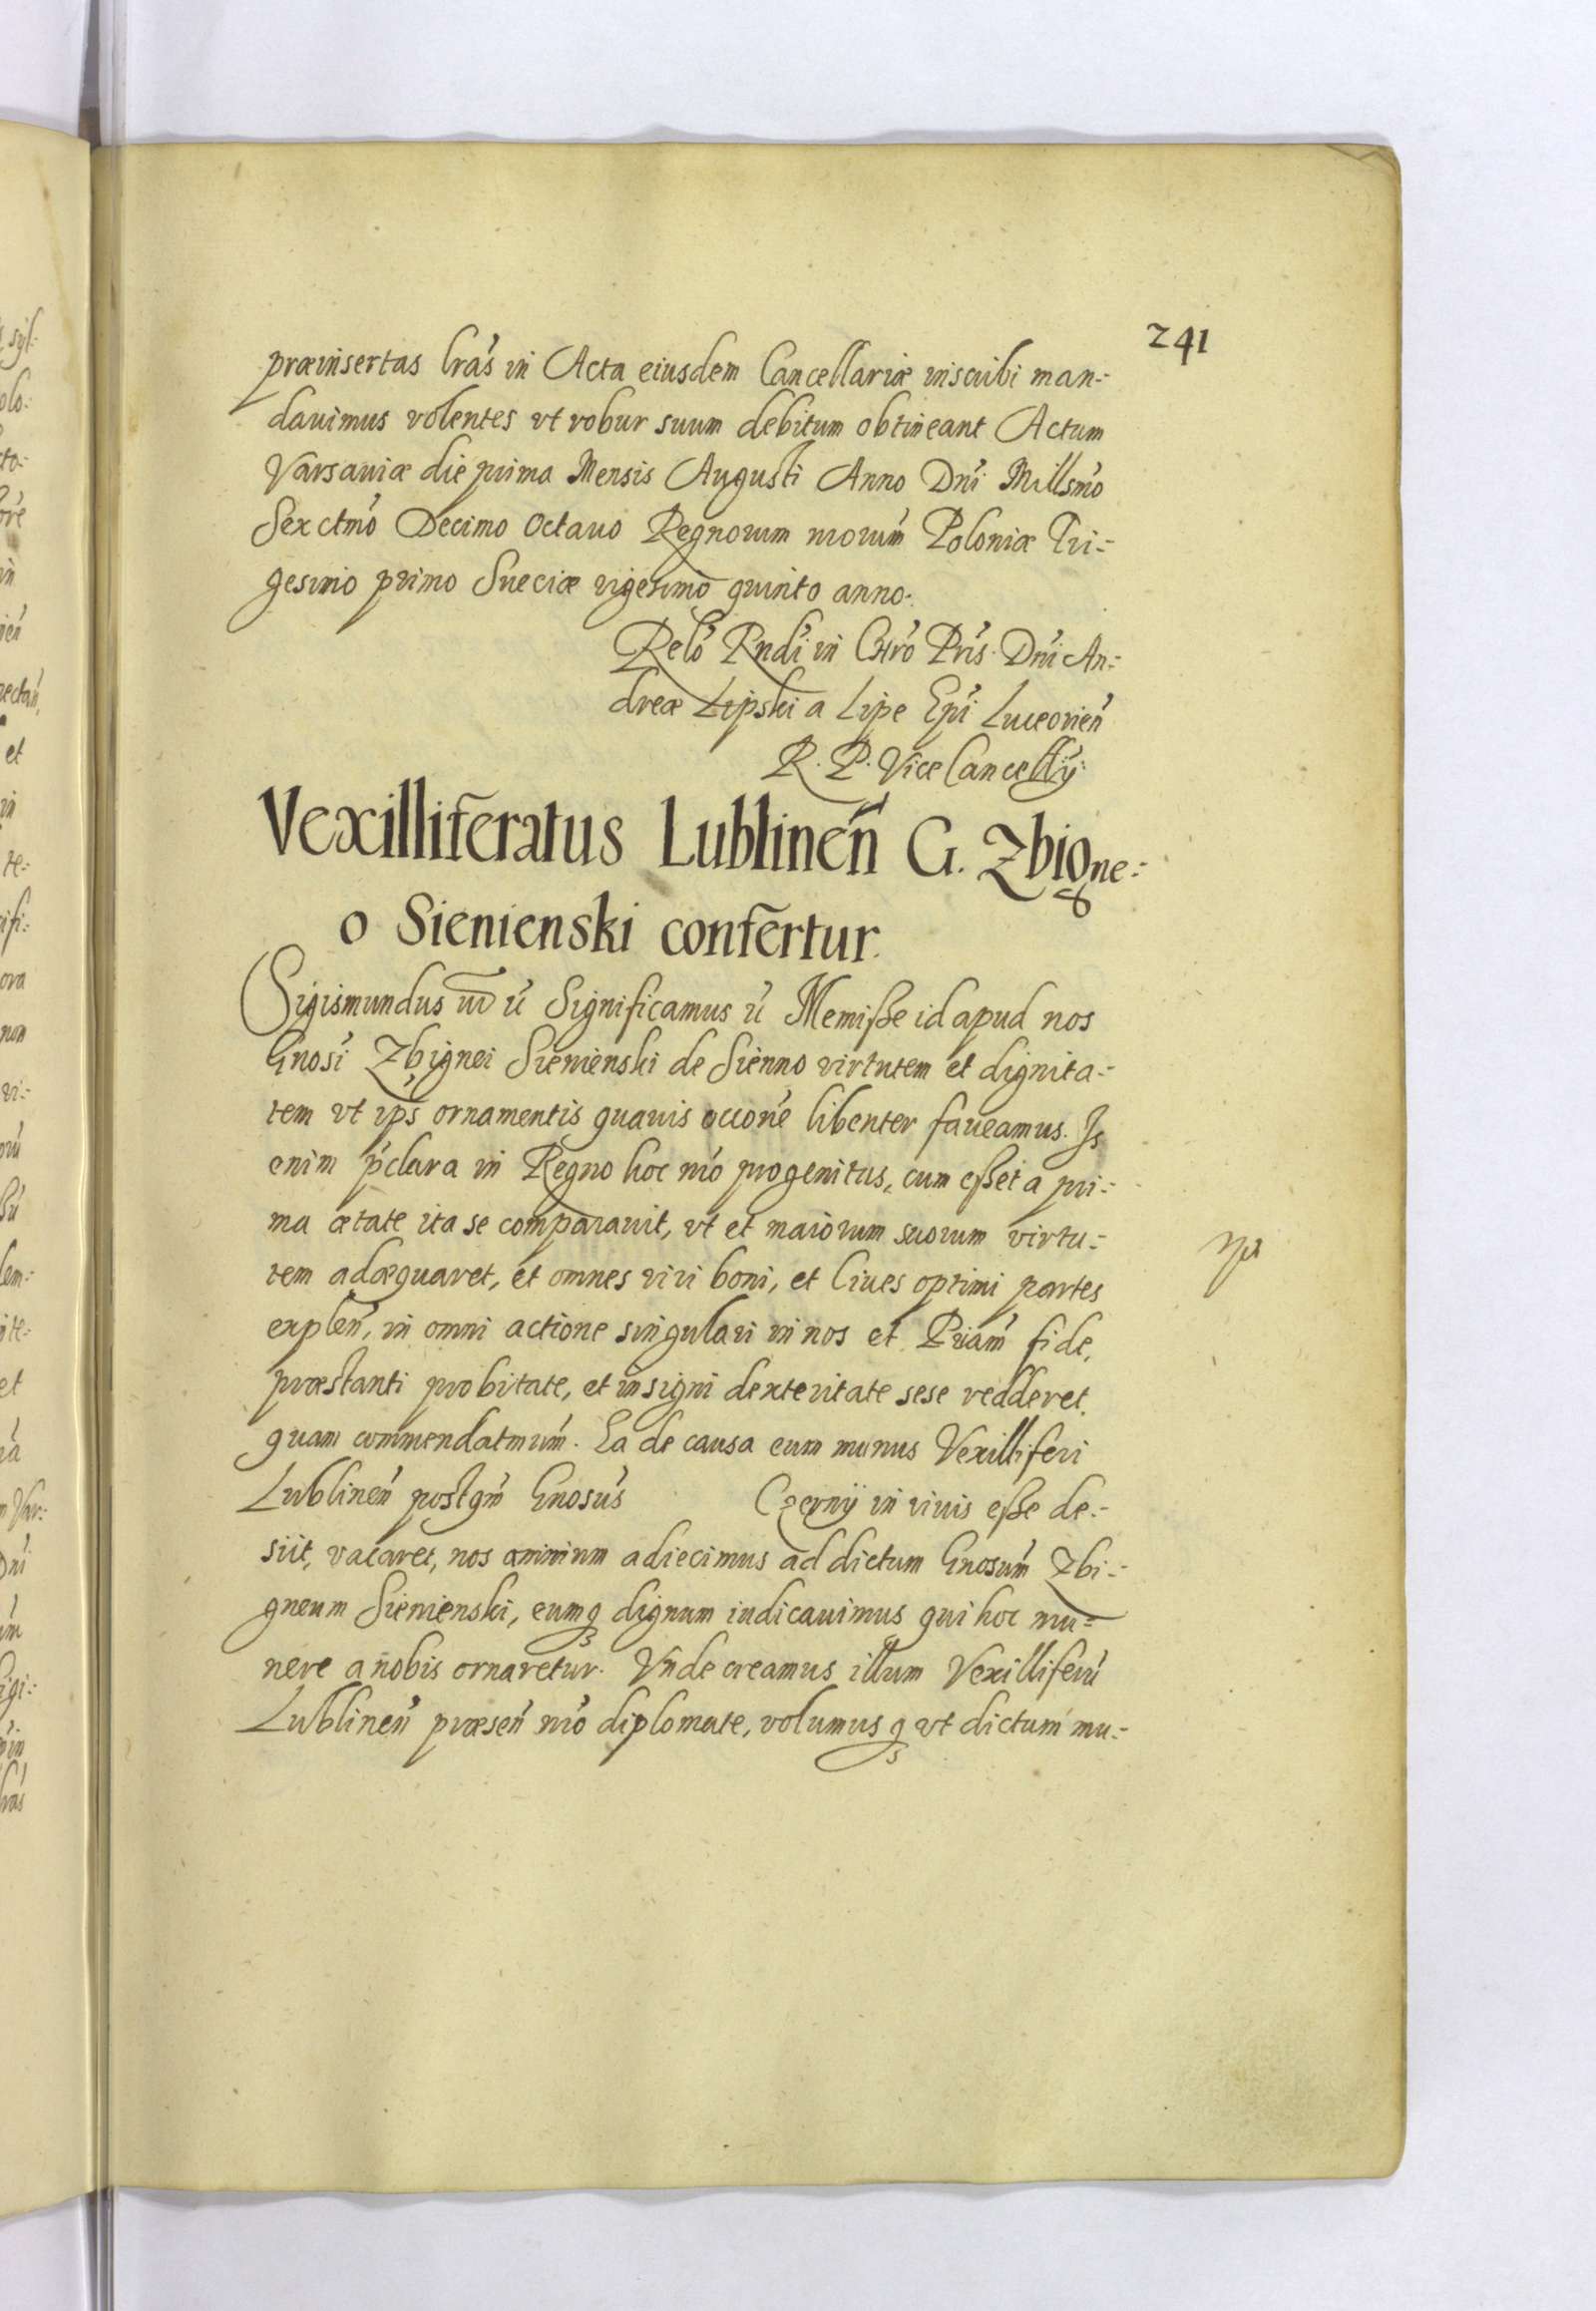 241
præinsertas lrás in Acta eiusdem Cancellariæ inscribi man-
dauimus volentes vt robur suum debitum obtineant Actum
Varsauiæ die prima Mensis Augusti Anno Dni Millsmo
Sexctmo Decimo Octauo Regnorum nrorum Poloniæ Tri-
gesimo primo Sueciæ vigesimo quinto anno.
Relo Rndi in Chro Pris Dni An-
dreæ Lipski a Lipe Epi Luceorien
R. P. ViceCancellij
Vexilliferatus Lublinen G. Zbigne-
o Sienienski confertur.
Sigismundus Significamus Memisse id apud nos
Gnosi Zbignei Sienienski de Sienno virtutem et dignita-
tem vt ips ornamentis quauis occone libenter faueamus. Is
enim pclara in Regno hoc nro progenitus, cum esset a pri-
ma ætate ita se comparauit, vt et maiorum suorum virtu-
tem adæquaret, et omnes viri boni, et Ciues optimi partes
explen, in omni actione singulari in nos et Priam fide,
præstanti probitate, et insigni dexteritate sese redderet
quam commendatmum. Ea de causa cum munus Vexilliferi
Lublinen postqm Gnosus Czernij in viuis esse de-
siit, vacaret, nos animum adiecimus ad dictum Gnosum Zbi-
gneum Sienienski, eumq dignum iudicauimus qui hoc mu-
nere a nobis ornaretur. Vnde creamus illum Vexilliferu
Lublinen præsen nro diplomate, volumusq vt dictum mu-